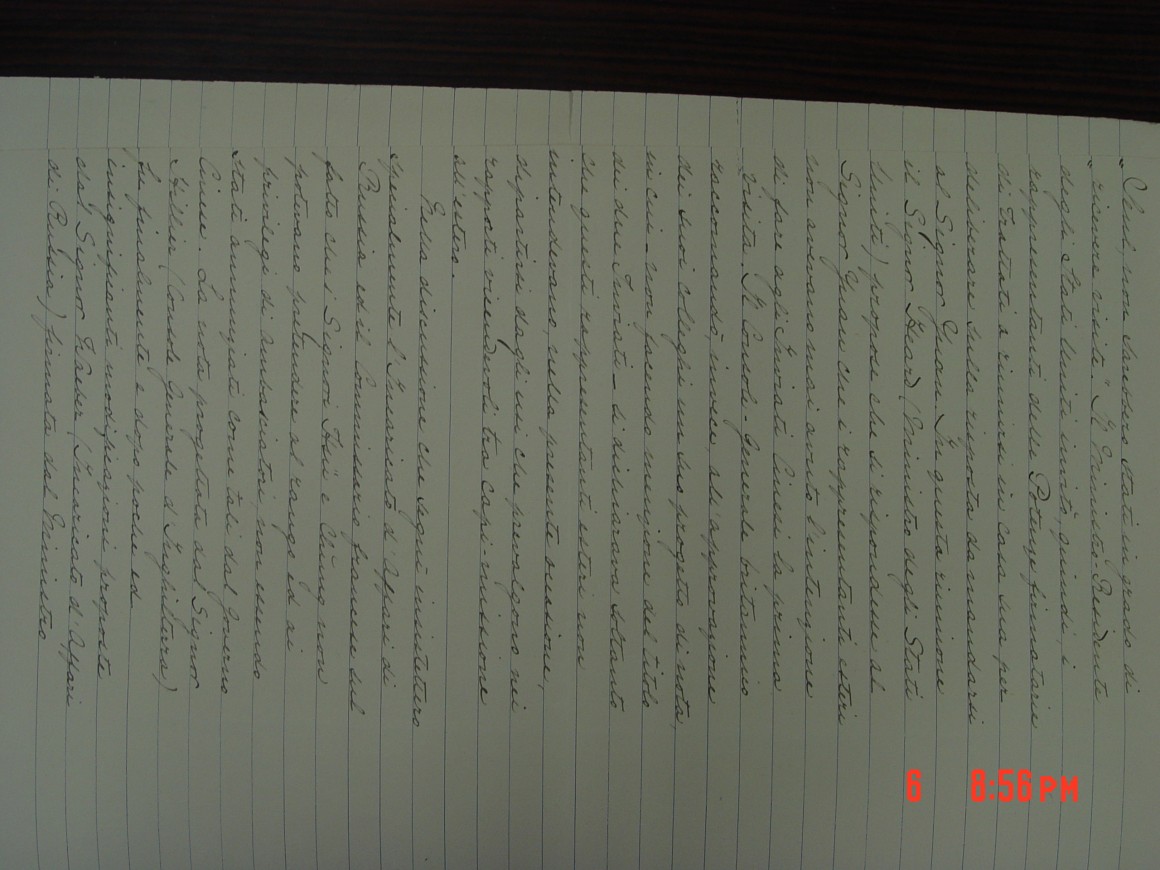 "Chul, non sarebbero stati in grado di
"ricevere visite". Il Ministro-Residente
degli Stati Uniti invitò, quindi, i
rappresentanti delle Potenze firmatarie
di Trattati a riunirsi in casa sua per
deliberare sulla risposta da mandarsi
al Signor Yuan. In questa riunione
il Signor Heard (Ministro degli Stati
Uniti) propose che si rispondesse al
Signor Yuan che i rappresentanti esteri
non avevano mai avuto l'intenzione
di fare agli Inviati Cinesi la prima
visita. Il Console-Generale britannico
raccomandò, invece, all'approvazione
dei suoi colleghi un suo progetto di nota,
in cui - non facendo menzione del titolo
dei due Inviati - si dichiarava soltanto
che questi rappresentanti esteri non
intendevano, nella presente occasione,
dipartirsi dagli usi che prevalgono nei
rapporti vicendevoli tra capi-missione
all'estero.
Nella discussione che seguì insistettero
specialmente l'Incaricato d'Affari di
Russia ed il Commissario francese sul
fatto che i Signori Hsü e Chung non
potevano pretendere al rango ed ai
privilegi di Ambasciatori, non essendo
stati annunziati come tali dal Governo
Cinese. La nota progettata dal Signor
Hillier (Console Generale d'Inghilterra)
fu finalmente e dopo poche ed
insignificanti modificazioni proposte
dal Signor Waeber (Incaricato d'Affari
di Russia) firmata dal Ministro
6 8:56 PM